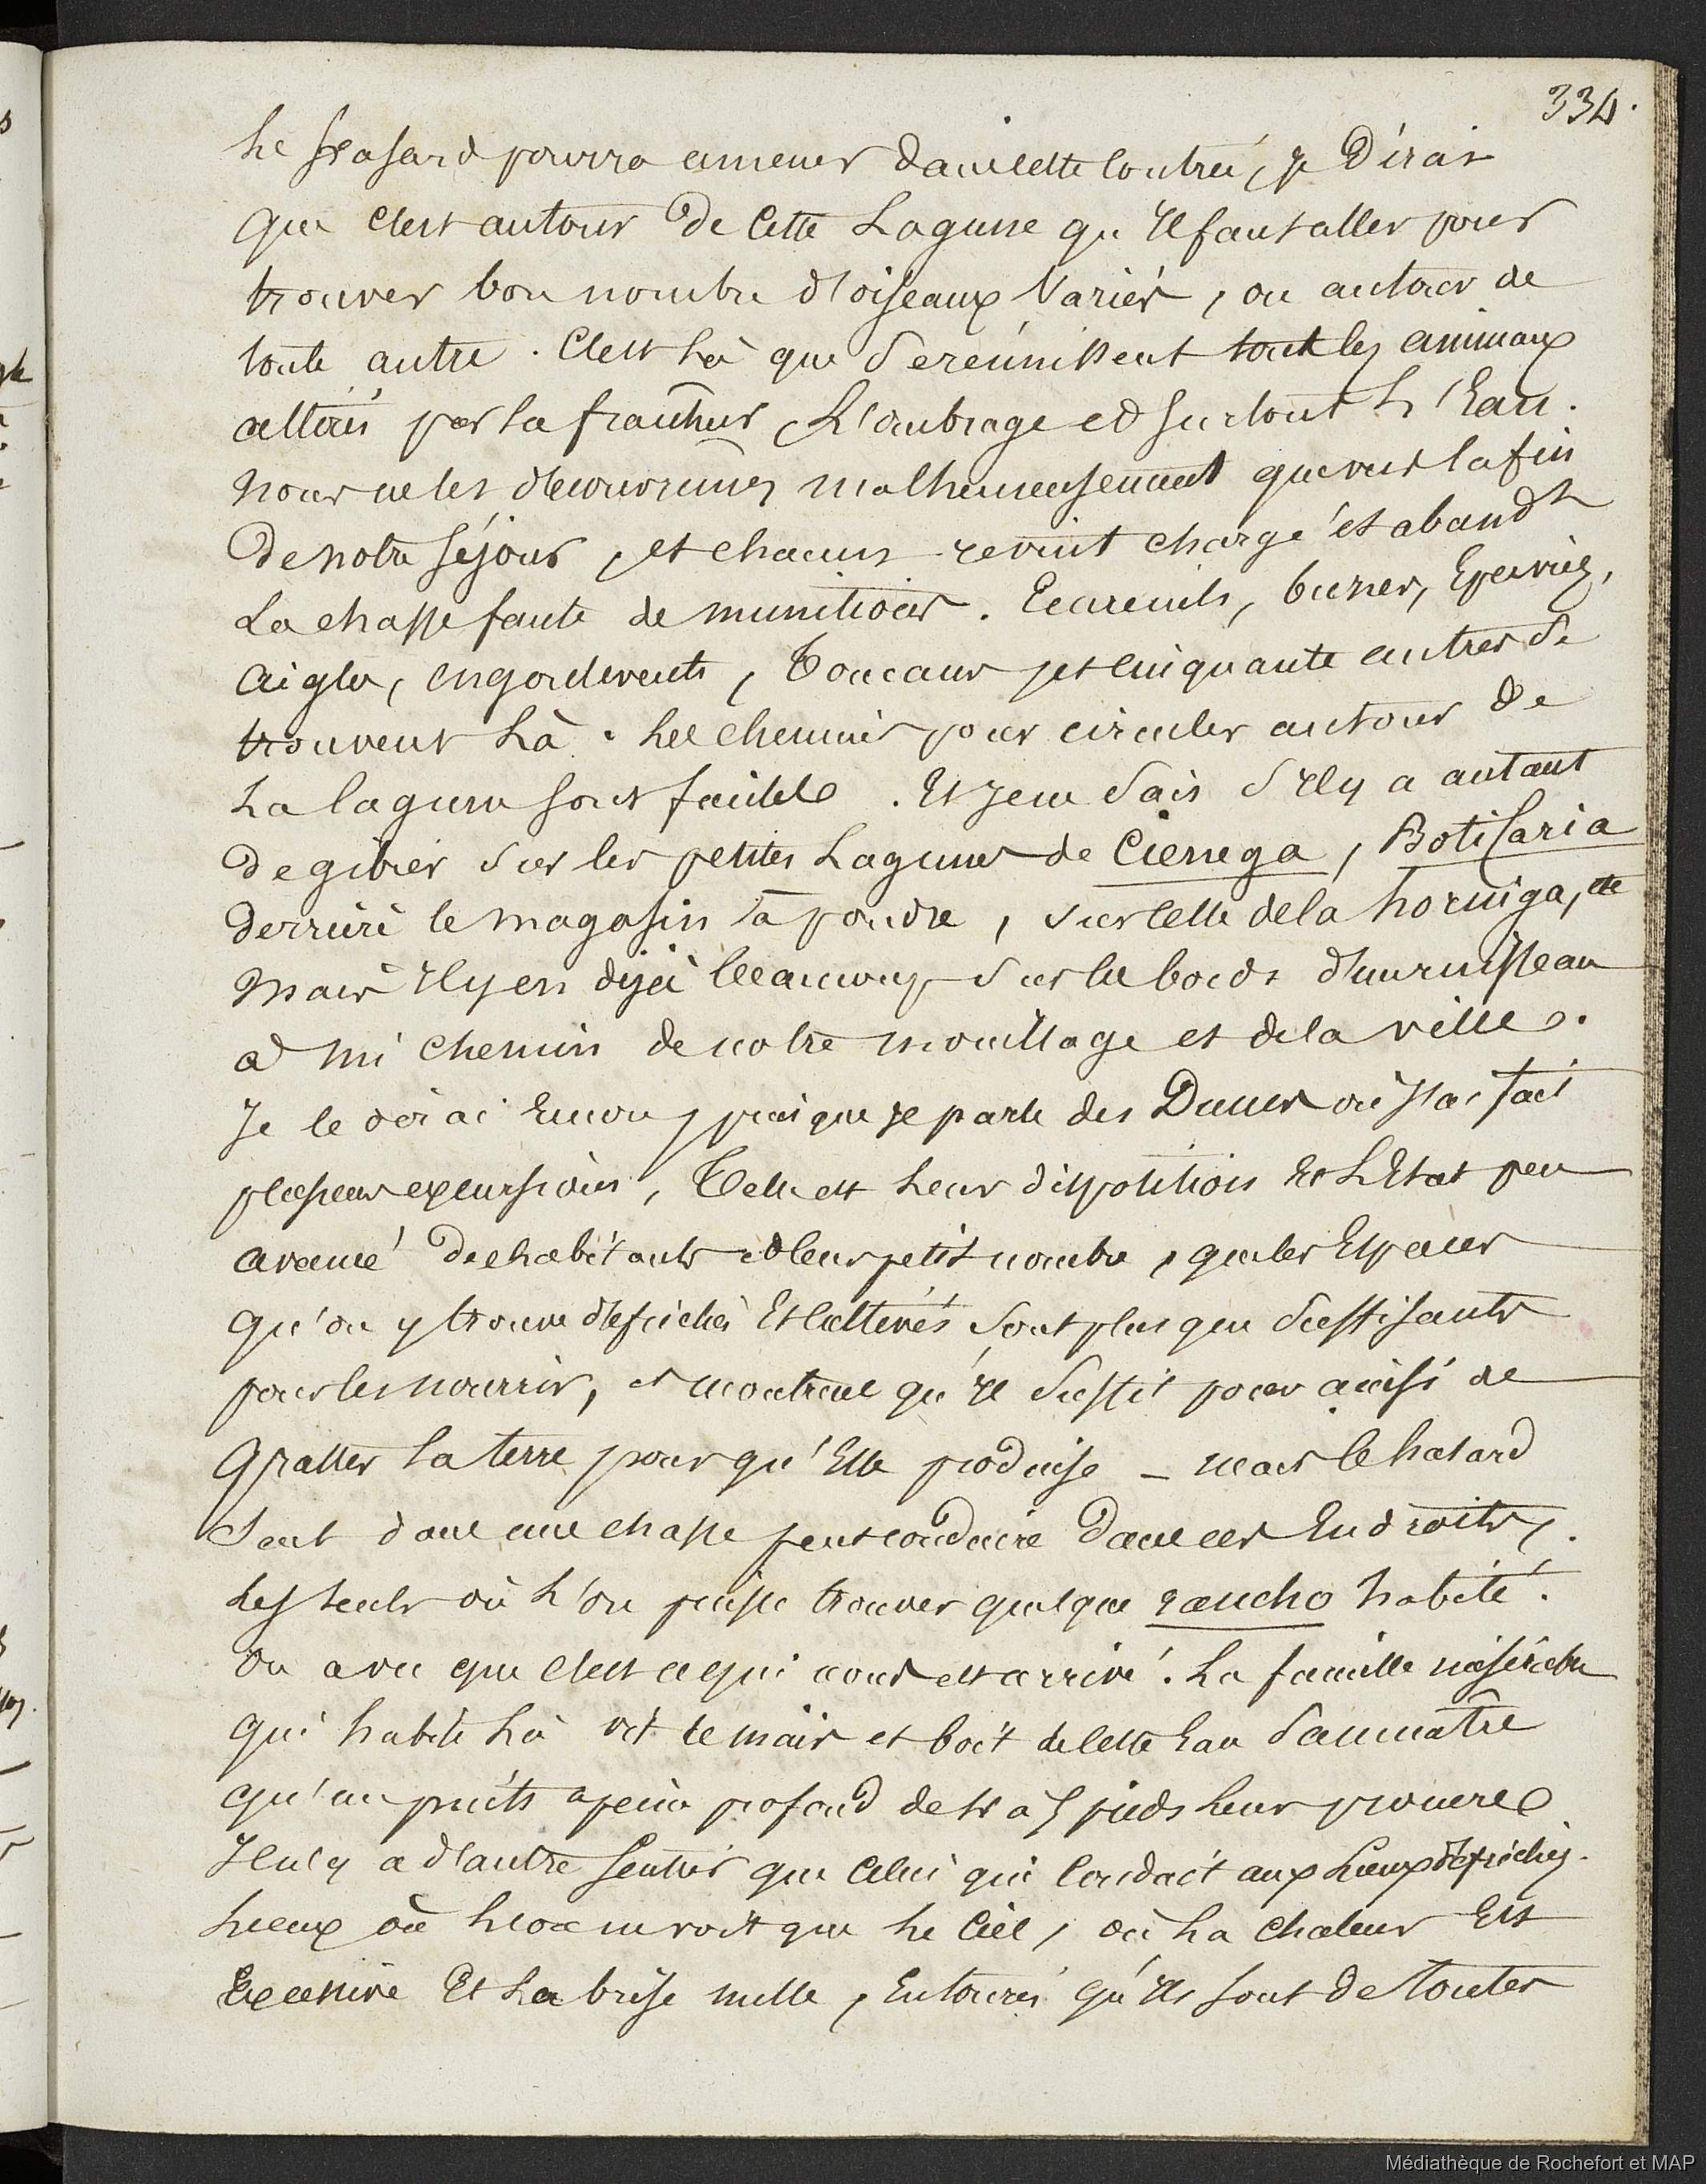 334.
Le hasard pourra amener dans cette contrée, je dirais
que c'est autour de cette Lagune qu'il faut aller pour
trouver bon nombre d'oiseaux variés, ou autour de
toute autre. C'est là que se réunissent tout les animaux
attirés par la fraîcheur, L'ombrage et surtout L'Eau.
Nous ne les découvrimes malheureusement que vers la fin
de notre séjour, et chacun revint chargé et aband.t
La chasse faute de munitions. Ecureuils, buses, Eperviers,
aigles, engoulevents, Toucans, et cinquante autres se
trouvent Là. Les chemins pour circuler autour de
La lagune sont faciles. Et je ne sais s'il y a autant
de gibier sur les petites Lagunes de Cienega, Boticaria
derrière le magasin à poudre, sur celle de la hormiga, etc
Mais il y en déjà beaucoup sur les bords d'un ruisseau
à mi chemin de notre mouillage et de la ville.
Je le dirai Encore, puisque je parle des Dunes où j'ai fait
plusieurs excursions, Telle est Leur disposition Et L'Etat peu
avancé des habitants et leur petit nombre, que les Espaces
qu'on y trouve défrichés Et cultivés sont plus que suffisants
pour les nourrir, et montrent qu'il suffit pour ainsi de
gratter La terre pour qu'Elle produise _ mais le hasard
seul dans une chasse peut conduire dans ces Endroits,
Les seuls où L'on puisse trouver quelque rancho habité.
On a vu que c'est ce qui nous est arrivé. La famille misérable
qui habite Là vit de maïs et boit de cette Eau saumatre
qu'un puits à peine profond de 4 à 5 pieds Leur procure
Il n'y a d'autre sentier que celui qui conduit aux Lieux défrichés.
Lieux où L'on ne voit que Le Ciel, où La chaleur Est
Excessive Et La brise nulle, Entourés qu'ils sont de toutes
Médiathèque de Rochefort et MAP